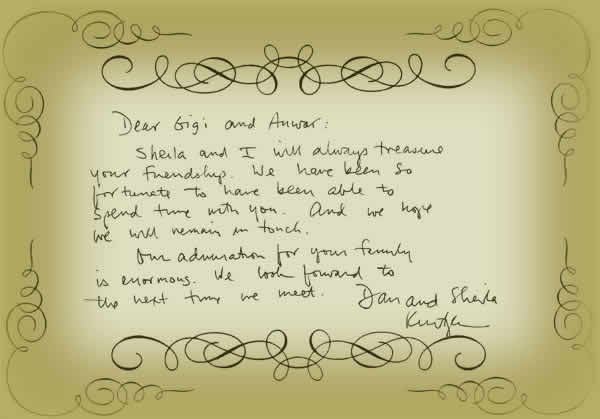 Dear Gigi and Anwar:
Sheila and I will always treasure
your friendship. We have been so
fortunate to have been able to
spend time with you. And we hope
we will remain in touch.
Our admiration for your family
is enormous. We look forward to
the next time we meet. Dan and Sheila